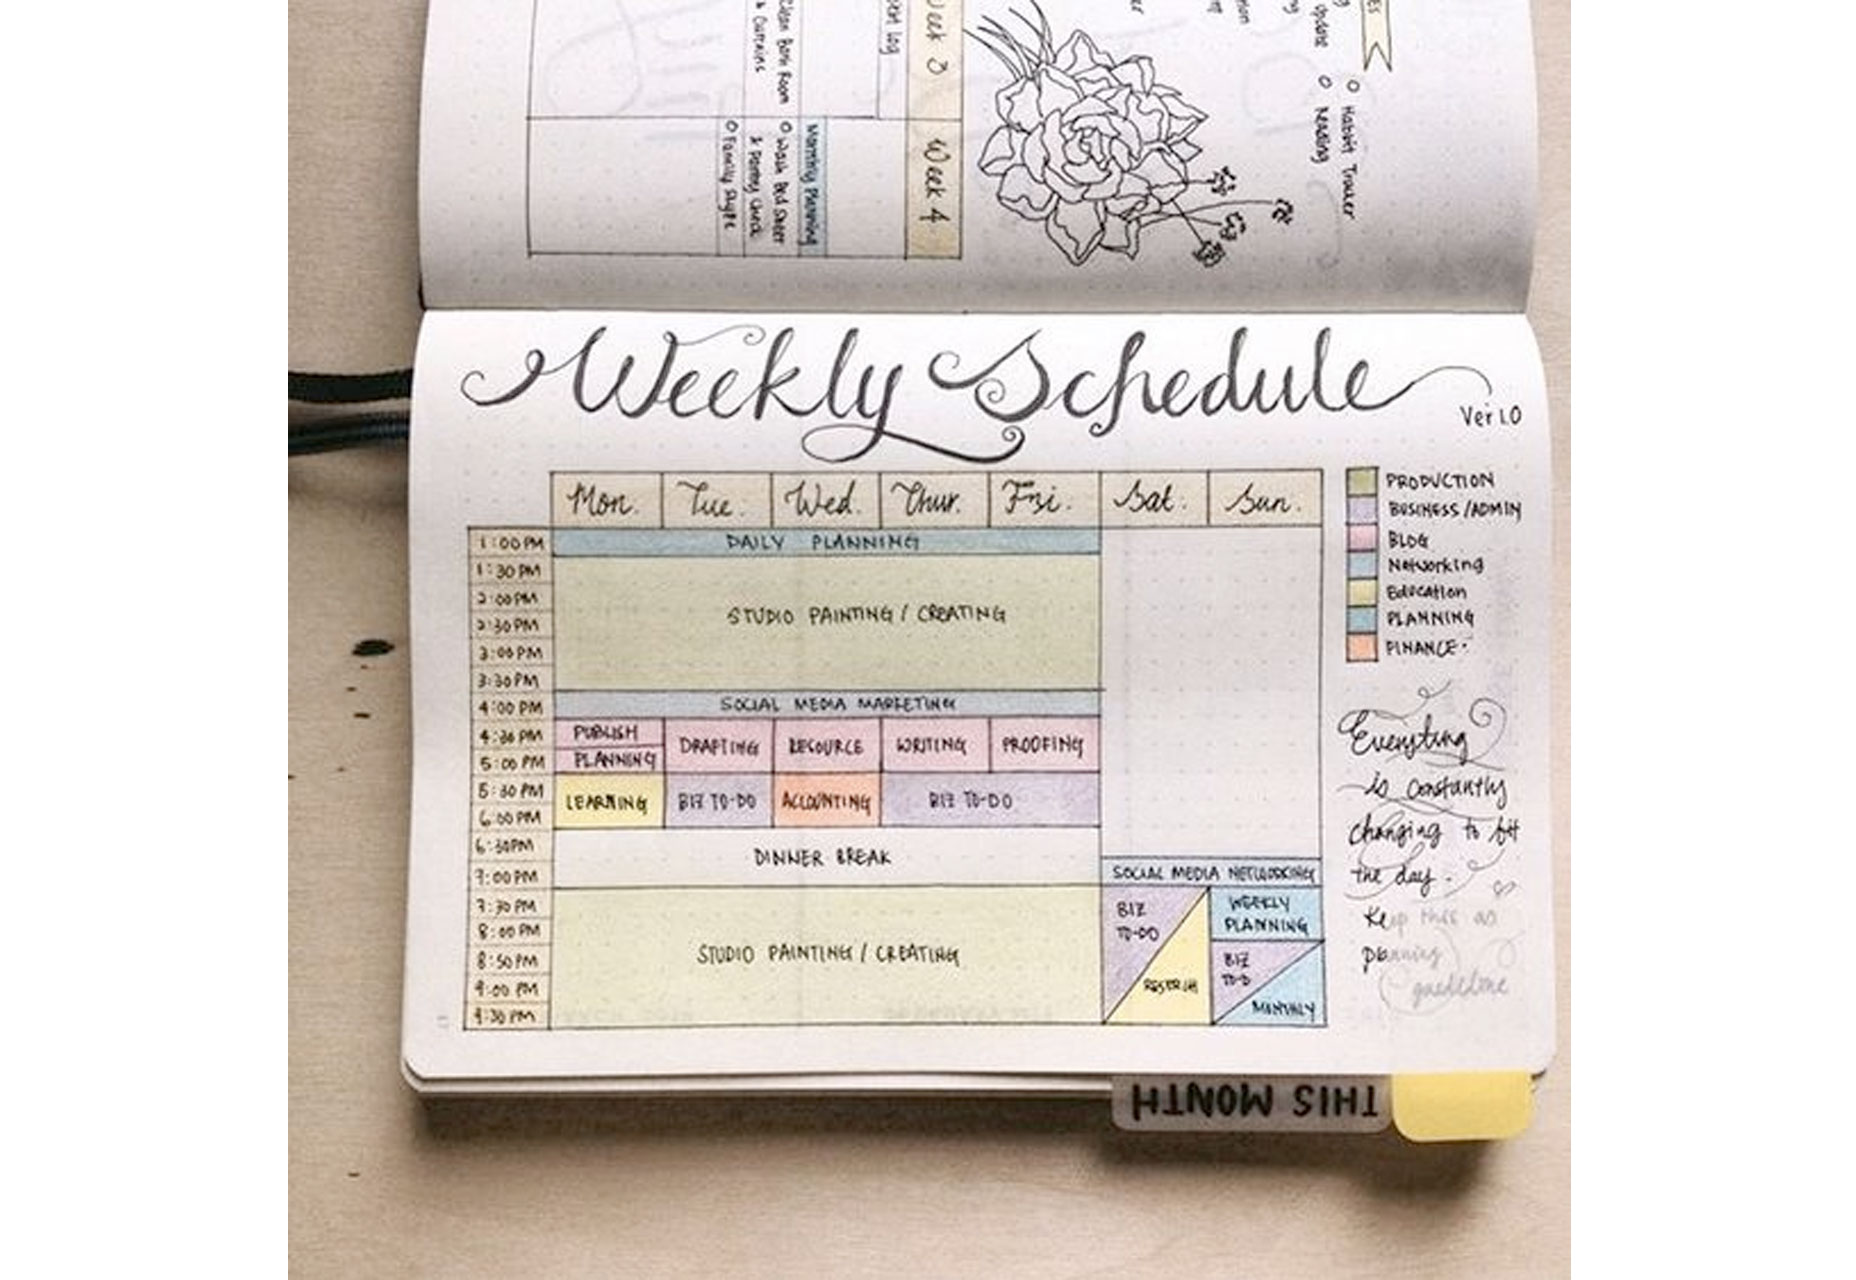 Week 3
Week 4
Clean Bath Room
& Curtains
Monthly Planning
O Wash Bed Sheet
& Pantry Check
O Family Skype
O Habbit Tracker
O Reading
Weekly Schedule
Ver 1.0
Mon. Tue. Wed. Thur. Fri. Sat. Sun.
1:00 PM DAILY PLANNING
1:30 PM
2:00 PM STUDIO PAINTING / CREATING
2:30 PM
3:00 PM
3:30 PM
4:00 PM SOCIAL MEDIA MARKETING
4:30 PM PUBLISH DRAFTING RESOURCE WRITING PROOFING
5:00 PM PLANNING
5:30 PM LEARNING BIZ TO-DO ACCOUNTING BIZ TO-DO
6:00 PM
6:30 PM DINNER BREAK
7:00 PM SOCIAL MEDIA NETWORKING
7:30 PM BIZ TO-DO WEEKLY PLANNING
8:00 PM
8:50 PM STUDIO PAINTING / CREATING BIZ TO-D
9:00 PM RESERCH
9:30 PM MONTHLY
PRODUCTION
BUSINESS / ADMIN
BLOG
Networking
Education
PLANNING
FINANCE.
Everyting
is constantly
changing to fit
the day.
Keep this as
planning
guideline
THIS MONTH